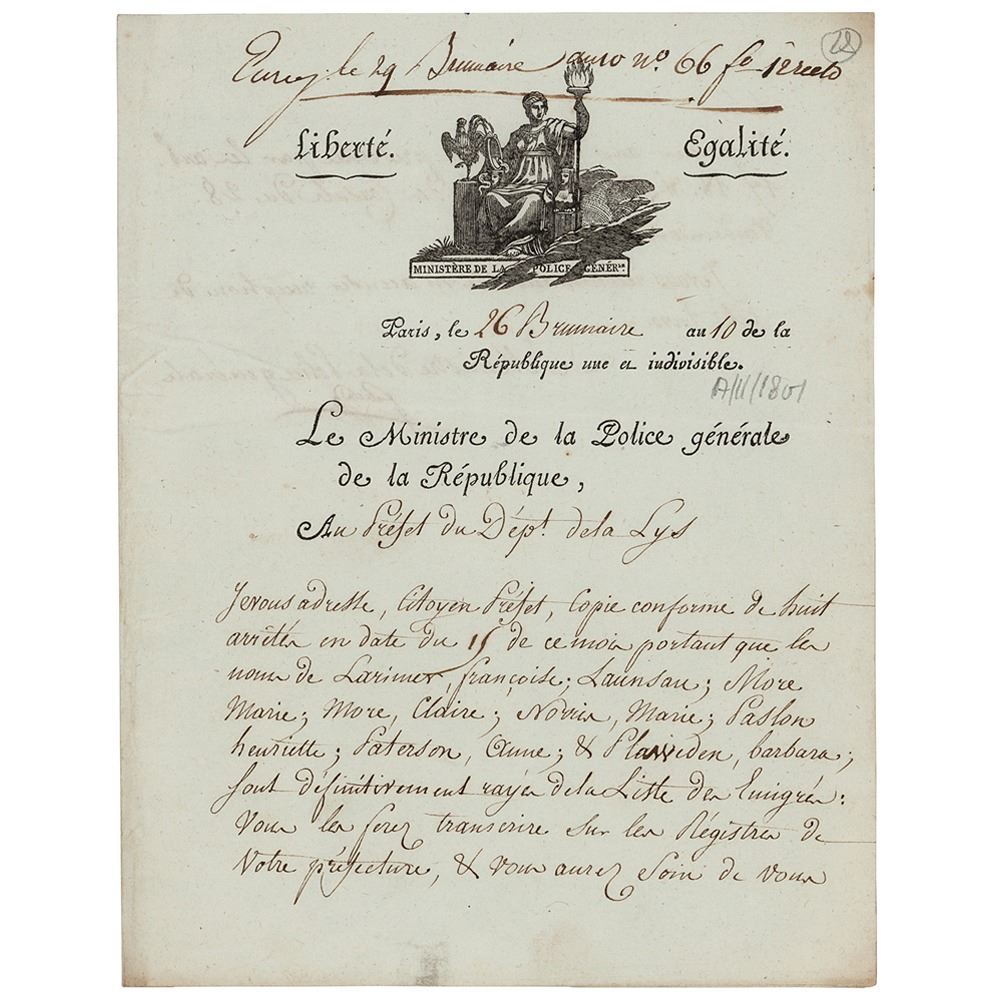 28
Enreg le 29 Brumaire an 10 n.º 66 fº 12 recto
Liberté. Egalité.
MINISTÈRE DE LA POLICE GÉNÉR.le
Paris, le 26 Brumaire an 10 de la
République une et indivisible.
/11/1801
Le Ministre de la Police générale
de la République,
Au Préfet du Dépt. de la Lys
Je vous adresse, Citoyen Préfet, Copie conforme de huit
arrêtés en date du 15 de ce mois portant que les
noms de Larimer, françoise; ; More
Marie; More, Claire; Norris, Marie; Paslon
henriette; Paterson, Anne; & Plawden, barbara;
sont définitivement rayés de la Liste des Emigrés:
Vous les ferez transcrire sur les Régistres de
Votre préfecture, & vous aurez Soin de vous